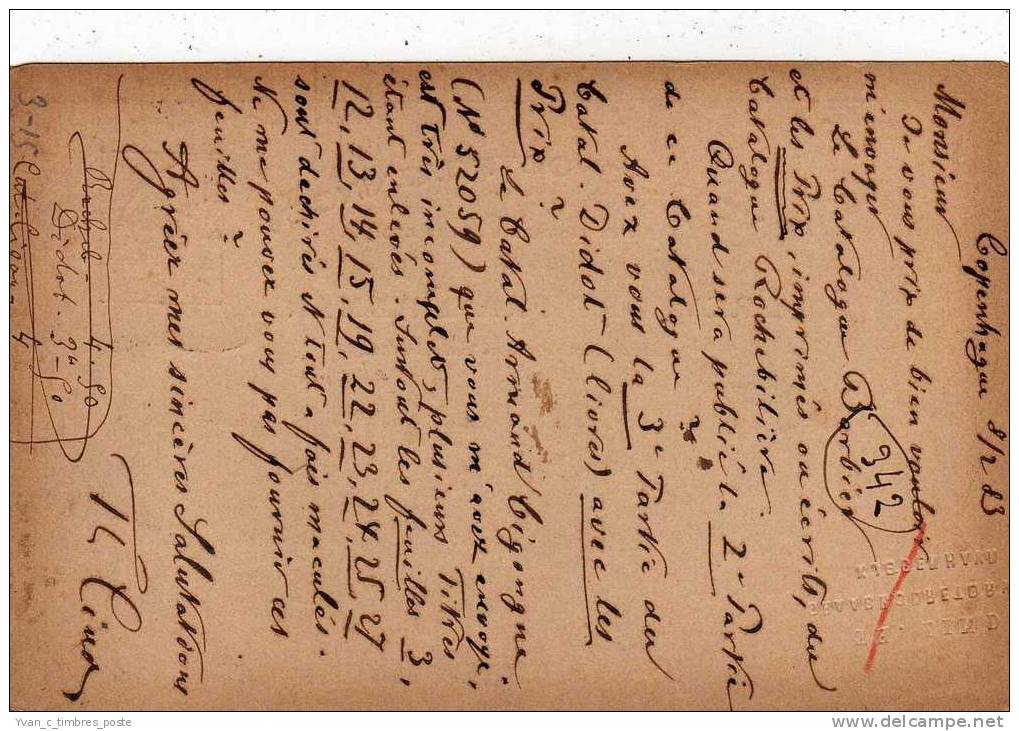 Copenhague 8/2 83
Monsieur
Je vous prix de bien vouloir
m'envoyer
Le Catalogue Barbier
342
et les Prix, imprimés ou écrits, du
Catalogue Rochebilière
Quand sera publié la 2e Partie
de ce Catalogue ?
Avez vous la 3e Partie du
Catal. Didot (livres) avec les
Prix ?
Le Catal. Armand Cigongne
(No 52059) que vous m'avez envoyé,
est très incomplet, plusieurs Titres
étant enlevés. Surtout les feuilles 3,
12, 13, 14, 15, 19, 22, 23, 24, 25, 27
sont dechirés et tout a fois maculés.
Ne me pouvez vous pas fournir ces
feuilles ?
Agréer mes sincères Salutations
Th Lind
4.50
Didot. 3.50
4
3-15
Yvan_c_timbres_poste
www.delcampe.net